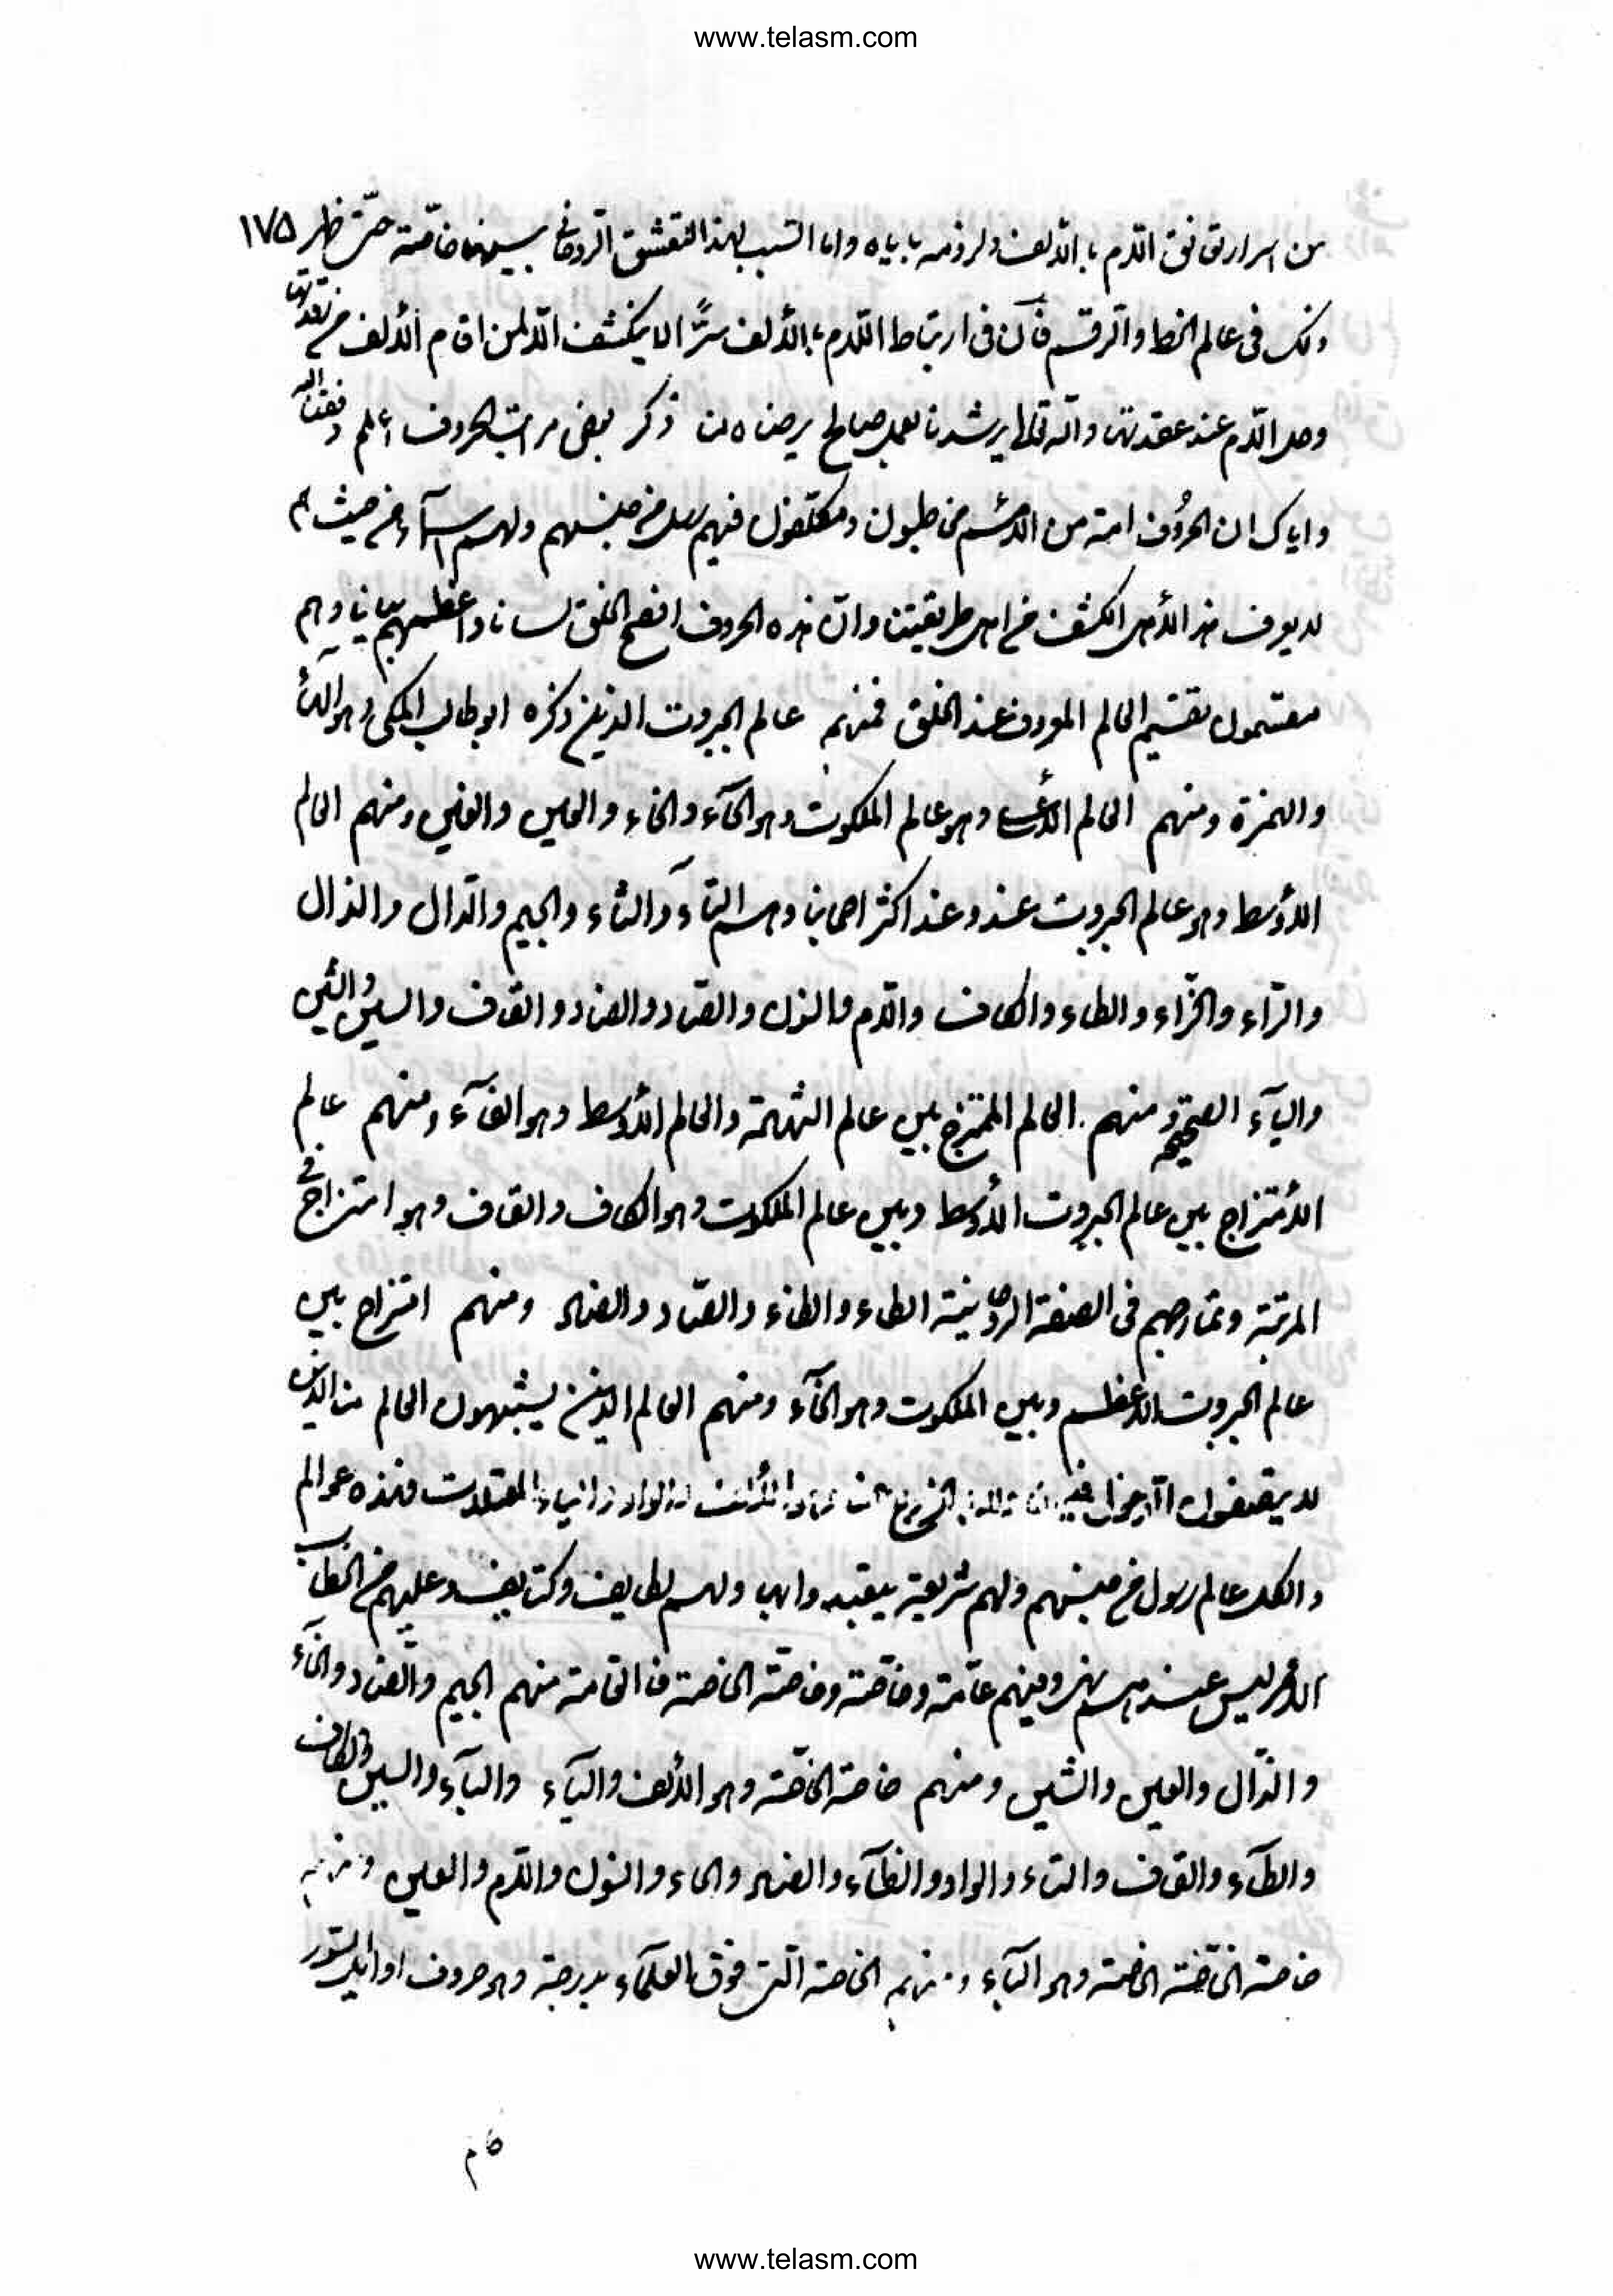 www.telasm.com
١٧٥
من اسرار تعانق اللام بالألف ولزومه اياه واما السبب لهذا التعشق الروحانى بينهما خاصة حتى ظهر
ذلك فى عالم الخط والرقم فان فى ارتباط اللام بالألف سرًّا لا ينكشف الا لمن اقام الألف من رقدتها
وحل اللام عند عقدتها والله تعالى يرشدنا لعمل صالح يرضاه منا ذكر بعض مراتب الحروف اعلم وفقنا الله
واياك ان الحروف امة من الأمم مخاطبون ومكلفون فيهم رسل من جنسهم ولهم اسمآء من حيث هم
لا يعرف هذا الأهل الكشف من اهل طريقتنا وان هذه الحروف افصح الخلق لسانا واعظمهم بيانا وهم
مقسمون تقسيم العالم المعروف عند الخلق فمنهم عالم الجبروت الذين ذكره ابو طالب المكى وهو الهآء
والهمزة ومنهم العالم الأعلى وهو عالم الملكوت وهو الحآء والخاء والعين والغين ومنهم العالم
الأوسط وهو عالم الجبروت عند وعند اكثر اصحابنا وهم التآء والثاء والجيم والدال والذال
والراء والزاء والظاء والكاف واللام والنون والصاد والضاد والقاف والسين والشين
واليآء الصحيحة ومنهم العالم الممتزج بين عالم الشهادة والعالم الأوسط وهو الفآء ومنهم عالم
الأمتزاج بين عالم الجبروت الأوسط وبين عالم الملكوت وهو الكاف والقاف وهو امتزاج فى
المرتبة وتمازجهم فى الصفة الروحانية الطاء والظاء والصاد والضاد ومنهم امتزاج بين
عالم الجبروت الأعظم وبين الملكوت وهو الحآء ومنهم العالم الذين يشبهون العالم منا الذين
لا يتصفون والألف والواو والياء المعتلات فهذه عوالم
والكل عالم رسول من جنسهم ولهم شريعة يتعبدوا بها ولهم لطايف وكثايف وعليهم من الخطاب
الأمر ليس عندهم نهى وفيهم عامة وخاصة وخاصة الخاصة فالعامة منهم الجيم والضاد والخآء
والدال والغين والشين ومنهم خاصة الخاصة وهو الألف واليآء والبآء والسين والكاف
والطآء والقاف والتاء والواو والظآء والضاد والحاء والنون واللام والغين ومنهم
خاصة الخاصة الخاصة وهو البآء ومنهم الخاصة التى فوق العامآء بدرجة وهو حروف اوايل السور
www.telasm.com